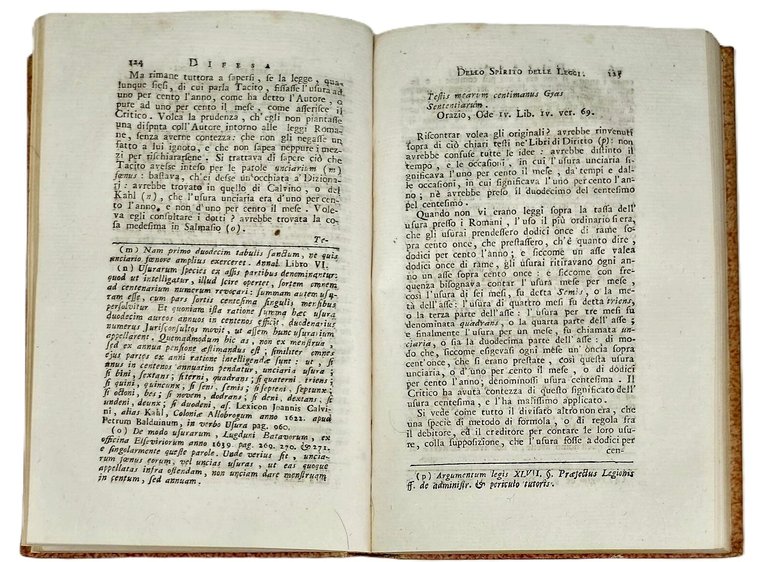 124 DIFESA
Ma rimane tuttora a sapersi, se la legge, qua-
lunque siesi, di cui parla Tacito, fissasse l'usura ad
uno per cento l'anno, come ha detto l'Autore, o
pure ad uno per cento il mese, come asserisce il
Critico. Volea la prudenza, ch'egli non piantasse
una disputa coll'Autore intorno alle leggi Roma-
ne, senza averne contezza: che non gli negasse un
fatto a lui ignoto, e che non sapea neppure i mez-
zi per rischiararsene. Si trattava di sapere ciò che
Tacito avesse inteso per le parole unciarium (m)
fœnus: bastava, ch'ei desse un'occhiata a' Diziona-
rj: avrebbe trovato in quello di Calvino, o del
Kahl (n), che l'usura unciaria era d'uno per cen-
to l'anno, e non d'uno per cento il mese. Vole-
va egli consultare i dotti? avrebbe trovata la co-
sa medesima in Salmasio (o).
Te-
(m) Nam primo duodecim tabulis sanctum, ne quis
unciario fœnore amplius exerceret. Annal. Libro VI.
(n) Usurarum species ex assis partibus denominantur:
quod ut intelligatur, illud scire oportet, sortem omnem
ad centenarium numerum revocari: summam autem usu-
ram esse, cum pars sortis centesima singulis mensibus
persolvitur. Et quoniam ista ratione summa hæc usura
duodecim aureos annuos in centenos efficit, duodenarius
numerus Jurisconsultos movit, ut assem hunc usurarium
appellarent. Quemadmodum hic as, non ex menstrua,
sed ex annua pensione æstimandus est; similiter omnes
ejus partes ex anni ratione intelligendæ sunt: ut, si
unus in centenos annuatim pendatur, unciaria usura;
si bini, sextans; si terni, quadrans; si quaterni, triens;
si quini, quincunx; si seni, semis; si septeni, septunx;
si octoni, bes; si novem, dodrans; si deni, dextans; si
undeni, deunx; si duodeni, as. Lexicon Joannis Calvi-
ni, alias Kahl, Coloniæ Allobrogum anno 1622. apud
Petrum Balduinum, in verbo Usura pag. 960.
(o) De modo usurarum, Lugduni Batavorum, ex
officina Elseviriorum anno 1639. pag. 269. 270. & 271.
e singolarmente queste parole. Unde verius sit, uncia-
rium fœnus eorum, vel uncias usuras, ut eas quoque
appellatas infra ostendam, non unciam dare menstruam
in centum, sed annuam.
DELLO SPIRITO DELLE LEGGI. 125
Testis mearum centimanus Gyas
Sententiarum.
Orazio, Ode IV. Lib. IV. ver. 69.
Riscontrar volea gli originali? avrebbe rinvenuti
sopra di ciò chiari testi ne' Libri di Diritto (p): non
avrebbe confuse tutte le idee: avrebbe distinto il
tempo, e le occasioni, in cui l'usura unciaria si-
gnificava uno per cento il mese, da' tempi e dal-
le occasioni, in cui significava l'uno per cento l'an-
no; nè avrebbe preso il duodecimo del centesimo
pel centesimo.
Quando non vi erano leggi sopra la tassa dell'
usura presso i Romani, l'uso il più ordinario si era,
che gli usurai prendessero dodici once di rame so-
pra cento once, che prestassero, ch'è quanto dire,
dodici per cento l'anno; e siccome un asse valea
dodici once di rame, gli usurai ritiravano ogni an-
no un asse sopra cento once: e siccome con fre-
quenza bisognava contar l'usura mese per mese,
così l'usura di sei mesi, fu detta Semis, o la me-
tà dell'asse: l'usura di quattro mesi fu detta triens,
o la terza parte dell'asse; l'usura per tre mesi fu
denominata quadrans, o la quarta parte dell'asse;
e finalmente l'usura per un mese, fu chiamata un-
ciaria, o sia la duodecima parte dell'asse: di mo-
do che, siccome esigevasi ogni mese un'oncia sopra
cent'once, che si erano prestate, così questa usura
unciaria, o d'uno per cento il mese, o di dodici
per cento l'anno; denominossi usura centesima. Il
Critico ha avuta contezza di questo significato dell'
usura centesima, e l'ha malissimo applicato.
Si vede come tutto il divisato altro non era, che
una specie di metodo, di formola, o di regola fra
il debitore, ed il creditore per contare le loro usu-
re, colla supposizione, che l'usura fosse a dodici per
cen-
(p) Argumentum legis XLVII. §. Præfectus Legionis
ff. de administr. & periculo tutoris.